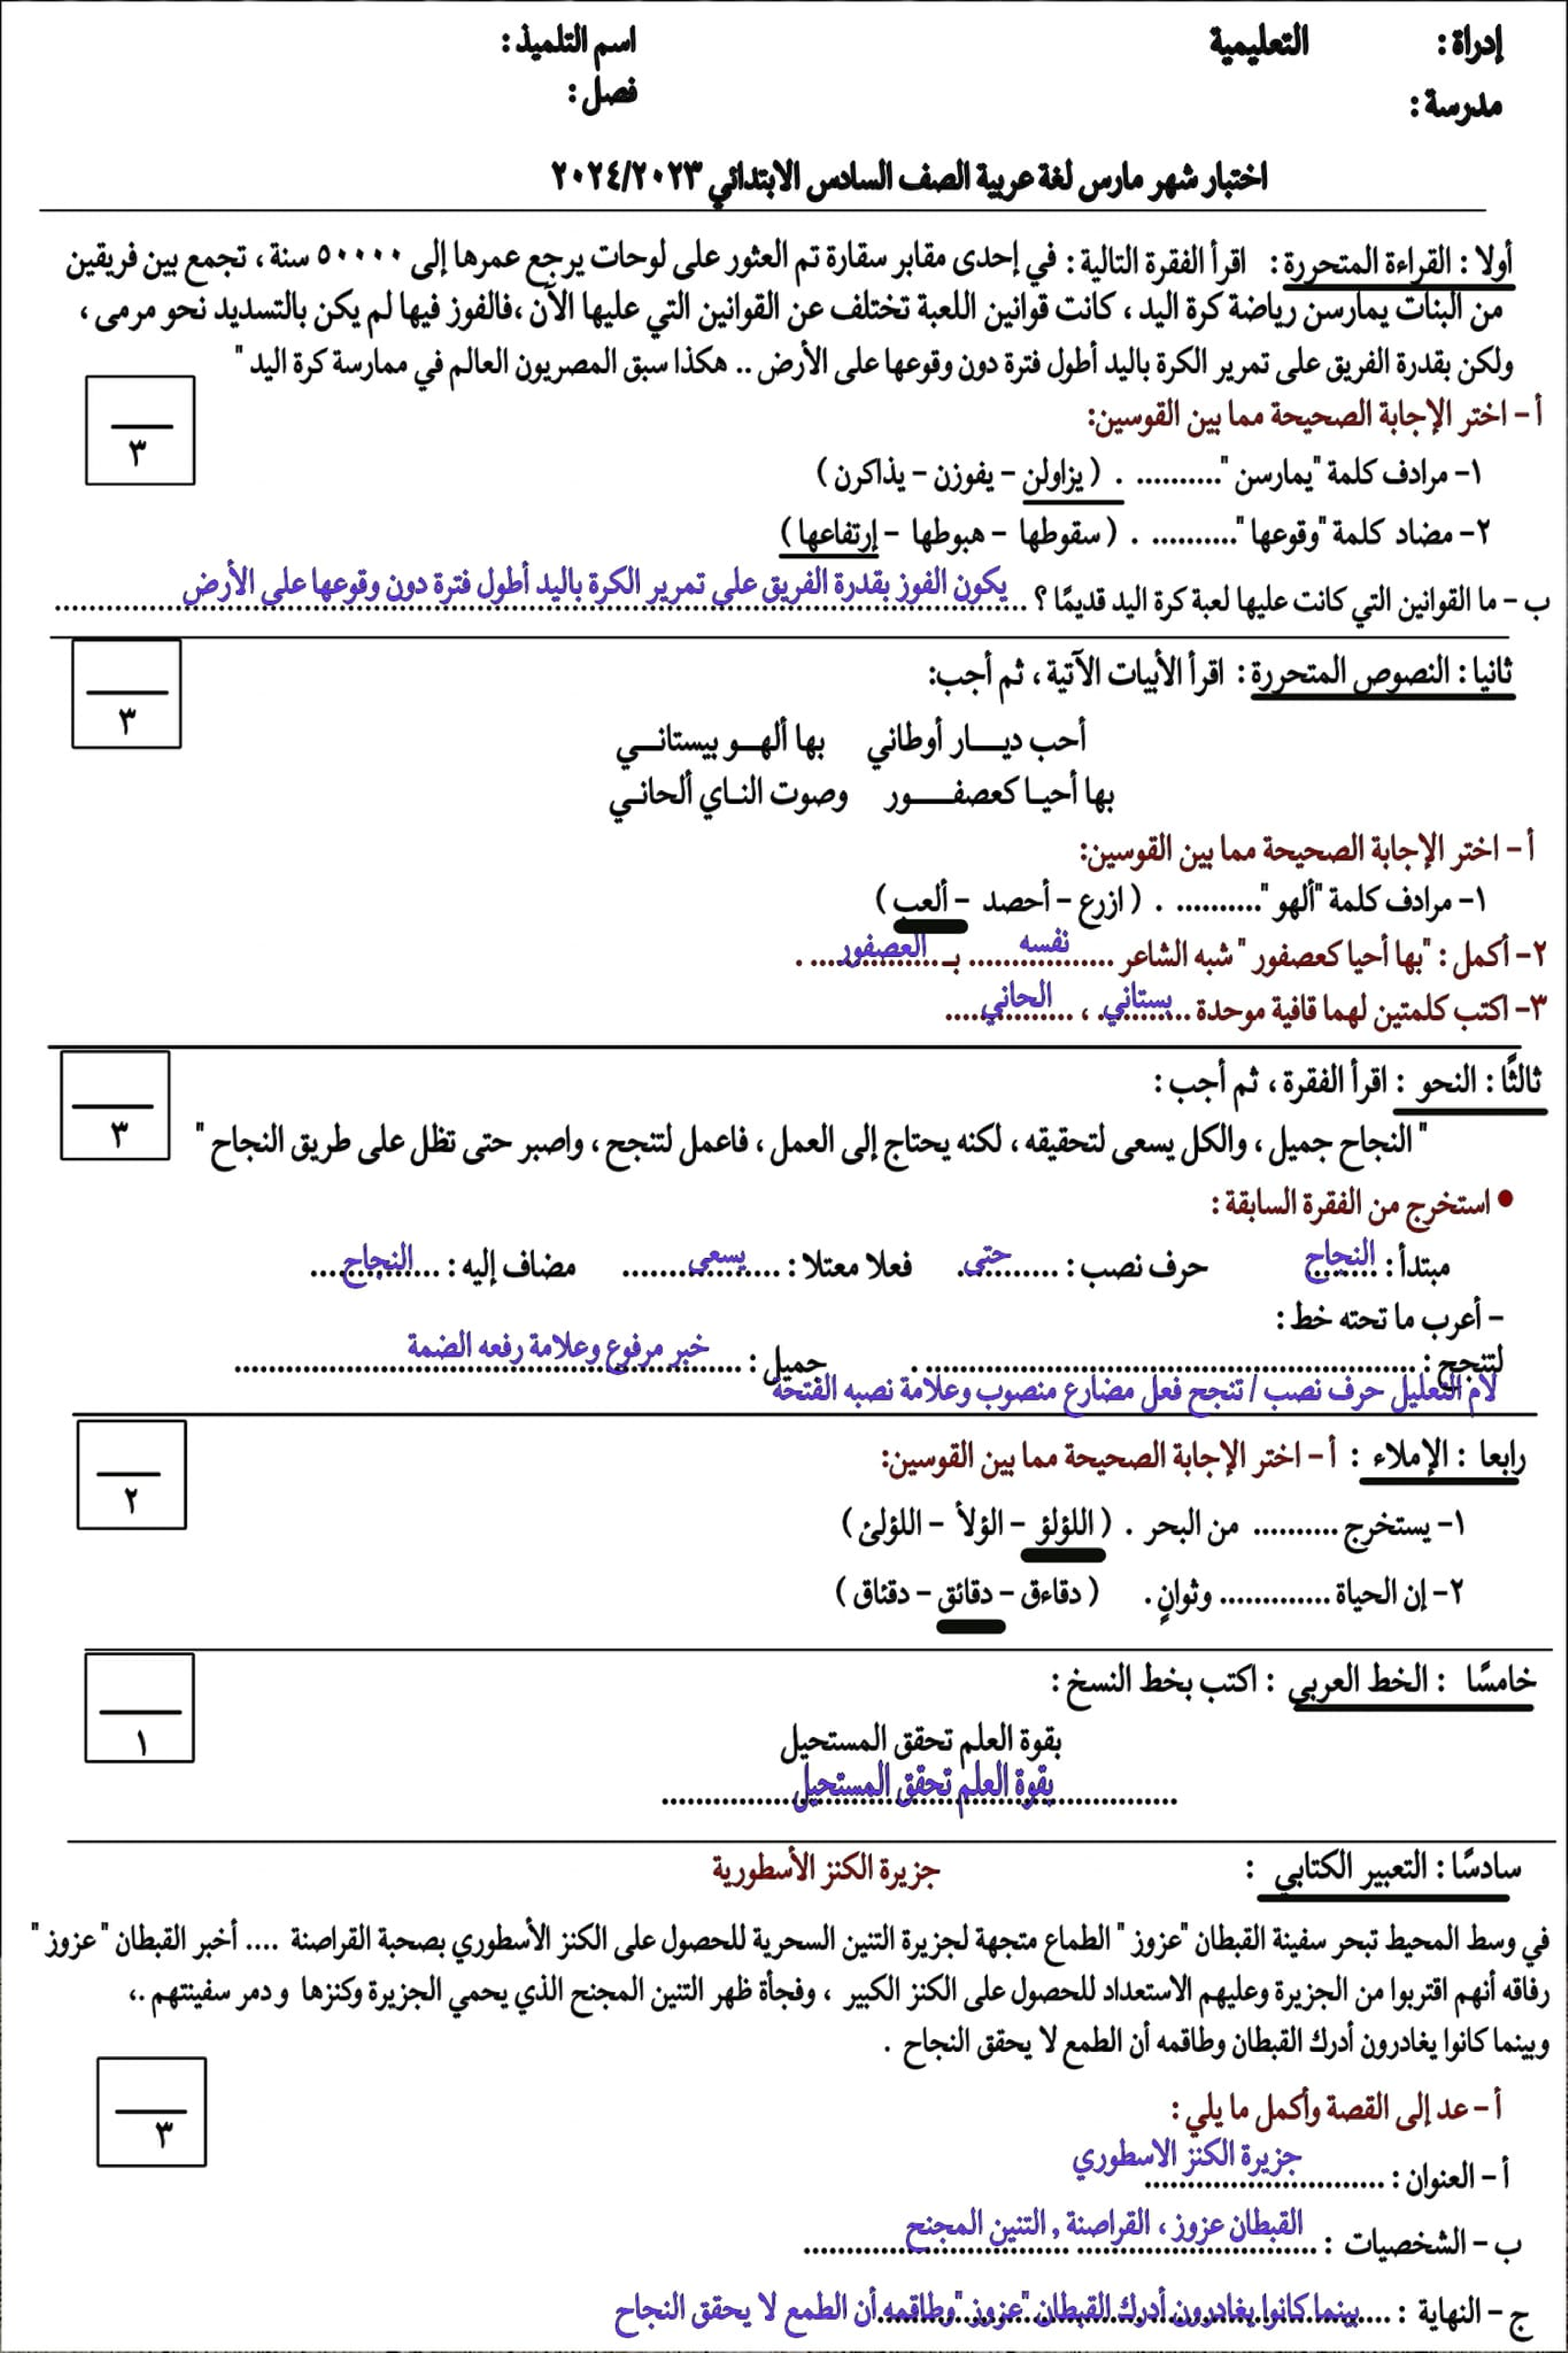 إدراة : التعليمية اسم التلميذ :
مدرسة : فصل :
اختبار شهر مارس لغة عربية الصف السادس الابتدائي ٢٠٢٤/٢٠٢٣
أولا : القراءة المتحررة : اقرأ الفقرة التالية : في إحدى مقابر سقارة تم العثور على لوحات يرجع عمرها إلى ٥٠٠٠٠ سنة ، تجمع بين فريقين
من البنات يمارسن رياضة كرة اليد ، كانت قوانين اللعبة تختلف عن القوانين التي عليها الآن ،فالفوز فيها لم يكن بالتسديد نحو مرمى ،
ولكن بقدرة الفريق على تمرير الكرة باليد أطول فترة دون وقوعها على الأرض .. هكذا سبق المصريون العالم في ممارسة كرة اليد "
٣
أ – اختر الإجابة الصحيحة مما بين القوسين:
١– مرادف كلمة "يمارسن ".......... . ( يزاولن – يفوزن – يذاكرن )
٢– مضاد كلمة "وقوعها ".......... . ( سقوطها – هبوطها – إرتفاعها )
ب – ما القوانين التي كانت عليها لعبة كرة اليد قديمًا ؟ يكون الفوز بقدرة الفريق على تمرير الكرة باليد أطول فترة دون وقوعها على الأرض
ثانيا : النصوص المتحررة : اقرأ الأبيات الآتية ، ثم أجب:
٣
أحب ديــــار أوطاني بها ألهــو بيستانــي
بها أحيــا كعصفـــــور وصوت النـاي ألحانـي
أ – اختر الإجابة الصحيحة مما بين القوسين:
١– مرادف كلمة "ألهو ".......... . ( ازرع – أحصد – ألعب )
٢– أكمل : "بها أحيا كعصفور " شبه الشاعر نفسه بـ العصفور .
٣– اكتب كلمتين لهما قافية موحدة بستاني ، الحاني
ثالثًا : النحو : اقرأ الفقرة ، ثم أجب :
٣
" النجاح جميل ، والكل يسعى لتحقيقه ، لكنه يحتاج إلى العمل ، فاعمل لتنجح ، واصبر حتى تظل على طريق النجاح "
• استخرج من الفقرة السابقة :
مبتدأ : النجاح حرف نصب : حتى فعلا معتلا : يسعى مضاف إليه : النجاح
– أعرب ما تحته خط :
لتنجح : .......... . جميل : خبر مرفوع وعلامة رفعه الضمة
لام التعليل حرف نصب / تنجح فعل مضارع منصوب وعلامة نصبه الفتحة
رابعا : الإملاء : أ – اختر الإجابة الصحيحة مما بين القوسين:
٢
١– يستخرج .......... من البحر . ( اللؤلؤ – الؤلأ – اللؤلئ )
٢– إن الحياة ............. وثوانٍ . ( دقاءق – دقائق – دقئاق )
خامسًا : الخط العربي : اكتب بخط النسخ :
١
بقوة العلم تحقق المستحيل
بقوة العلم تحقق المستحيل
سادسًا : التعبير الكتابي : جزيرة الكنز الأسطورية
في وسط المحيط تبحر سفينة القبطان "عزوز " الطماع متجهة لجزيرة التنين السحرية للحصول على الكنز الأسطوري بصحبة القراصنة .... أخبر القبطان " عزوز "
رفاقه أنهم اقتربوا من الجزيرة وعليهم الاستعداد للحصول على الكنز الكبير ، وفجأة ظهر التنين المجنح الذي يحمي الجزيرة وكنزها و دمر سفينتهم .،
وبينما كانوا يغادرون أدرك القبطان وطاقمه أن الطمع لا يحقق النجاح .
٣
أ – عد إلى القصة وأكمل ما يلي :
أ – العنوان : جزيرة الكنز الاسطوري
ب – الشخصيات : القبطان عزوز ، القراصنة , التنين المجنح
ج – النهاية : بينما كانوا يغادرون أدرك القبطان "عزوز "وطاقمه أن الطمع لا يحقق النجاح